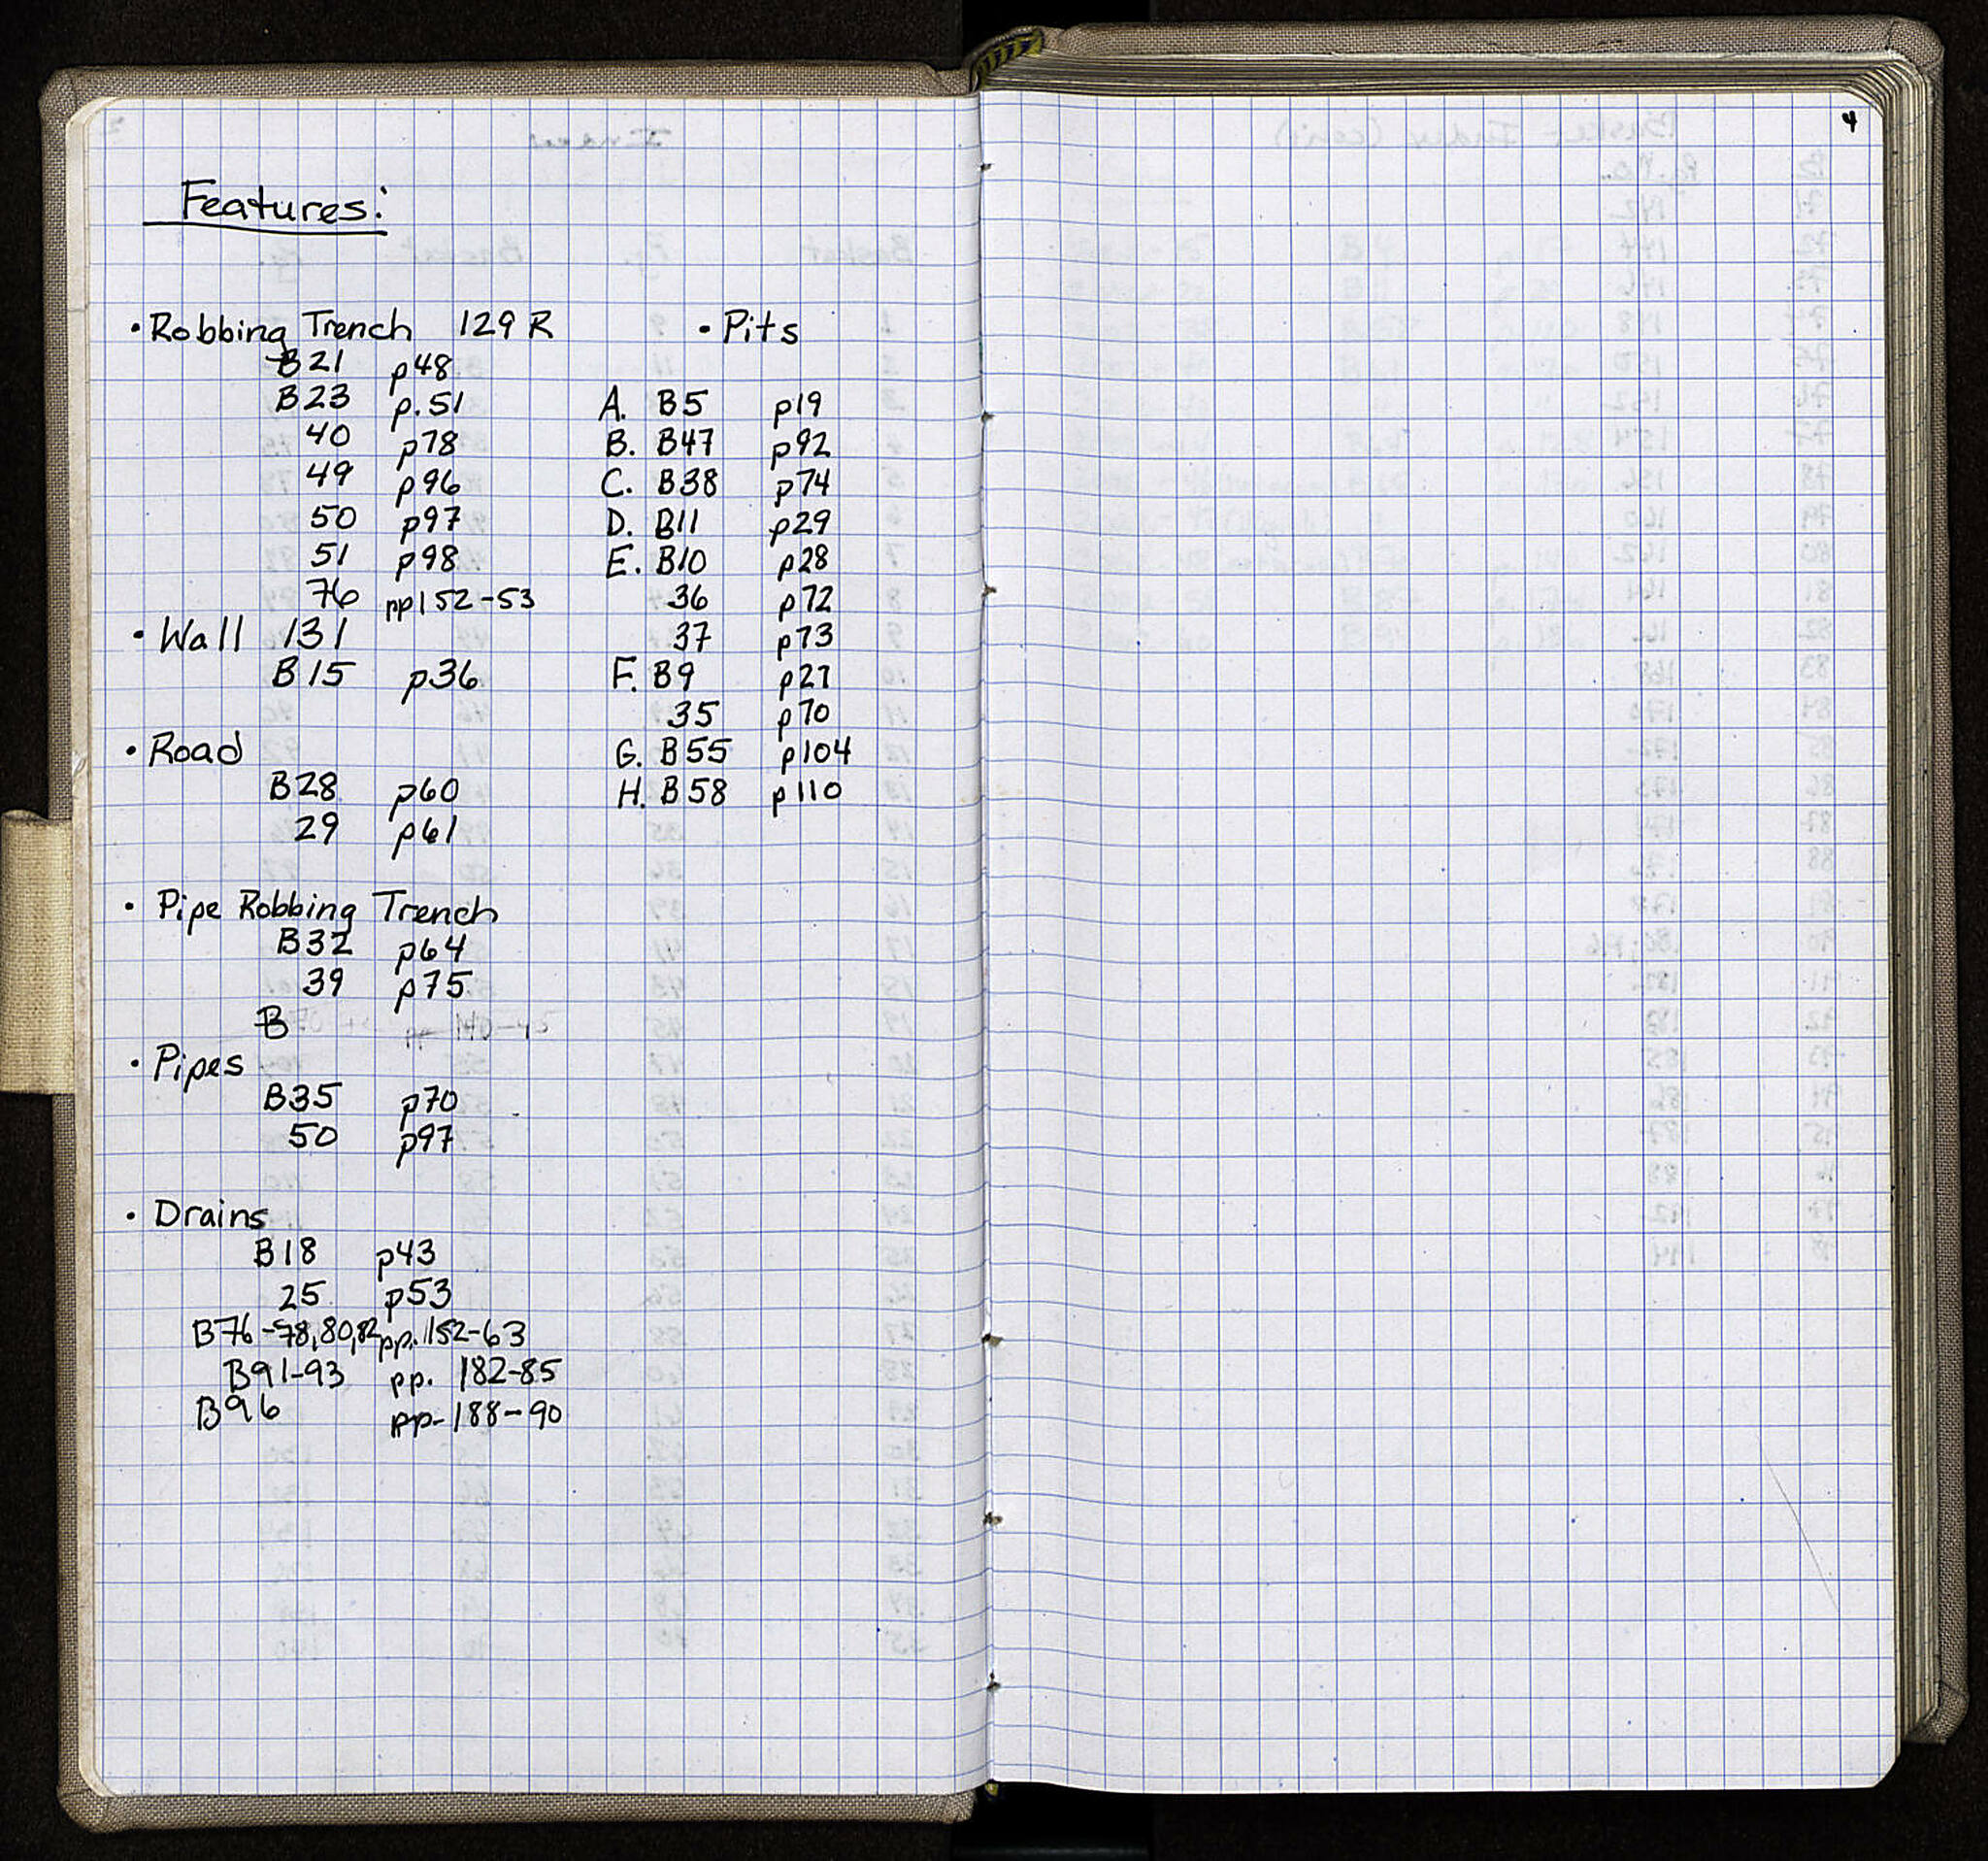 Features:
• Robbing Trench 129 R
B21 p48
B23 p.51
40 p78
49 p96
50 p97
51 p98
76 pp152-53
• Wall 131
B15 p36
• Road
B28 p60
29 p61
• Pipe Robbing Trench
B32 p64
39 p75
B 140-45
• Pipes
B35 p70
50 p97
• Drains
B18 p43
25 p53
B76-78,80,82 pp.152-63
B91-93 pp. 182-85
B96 pp-188-90
• Pits
A. B5 p19
B. B47 p92
C. B38 p74
D. B11 p29
E. B10 p28
36 p72
37 p73
F. B9 p27
35 p70
G. B55 p104
H. B58 p110
4